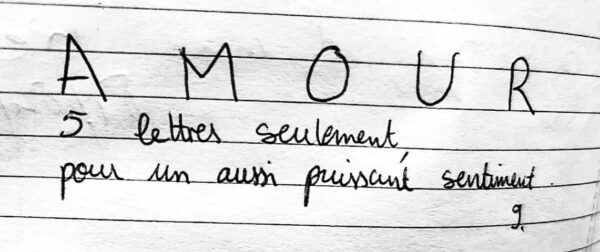 A M O U R
5 lettres seulement,
pour un aussi puissant sentiment.
g.